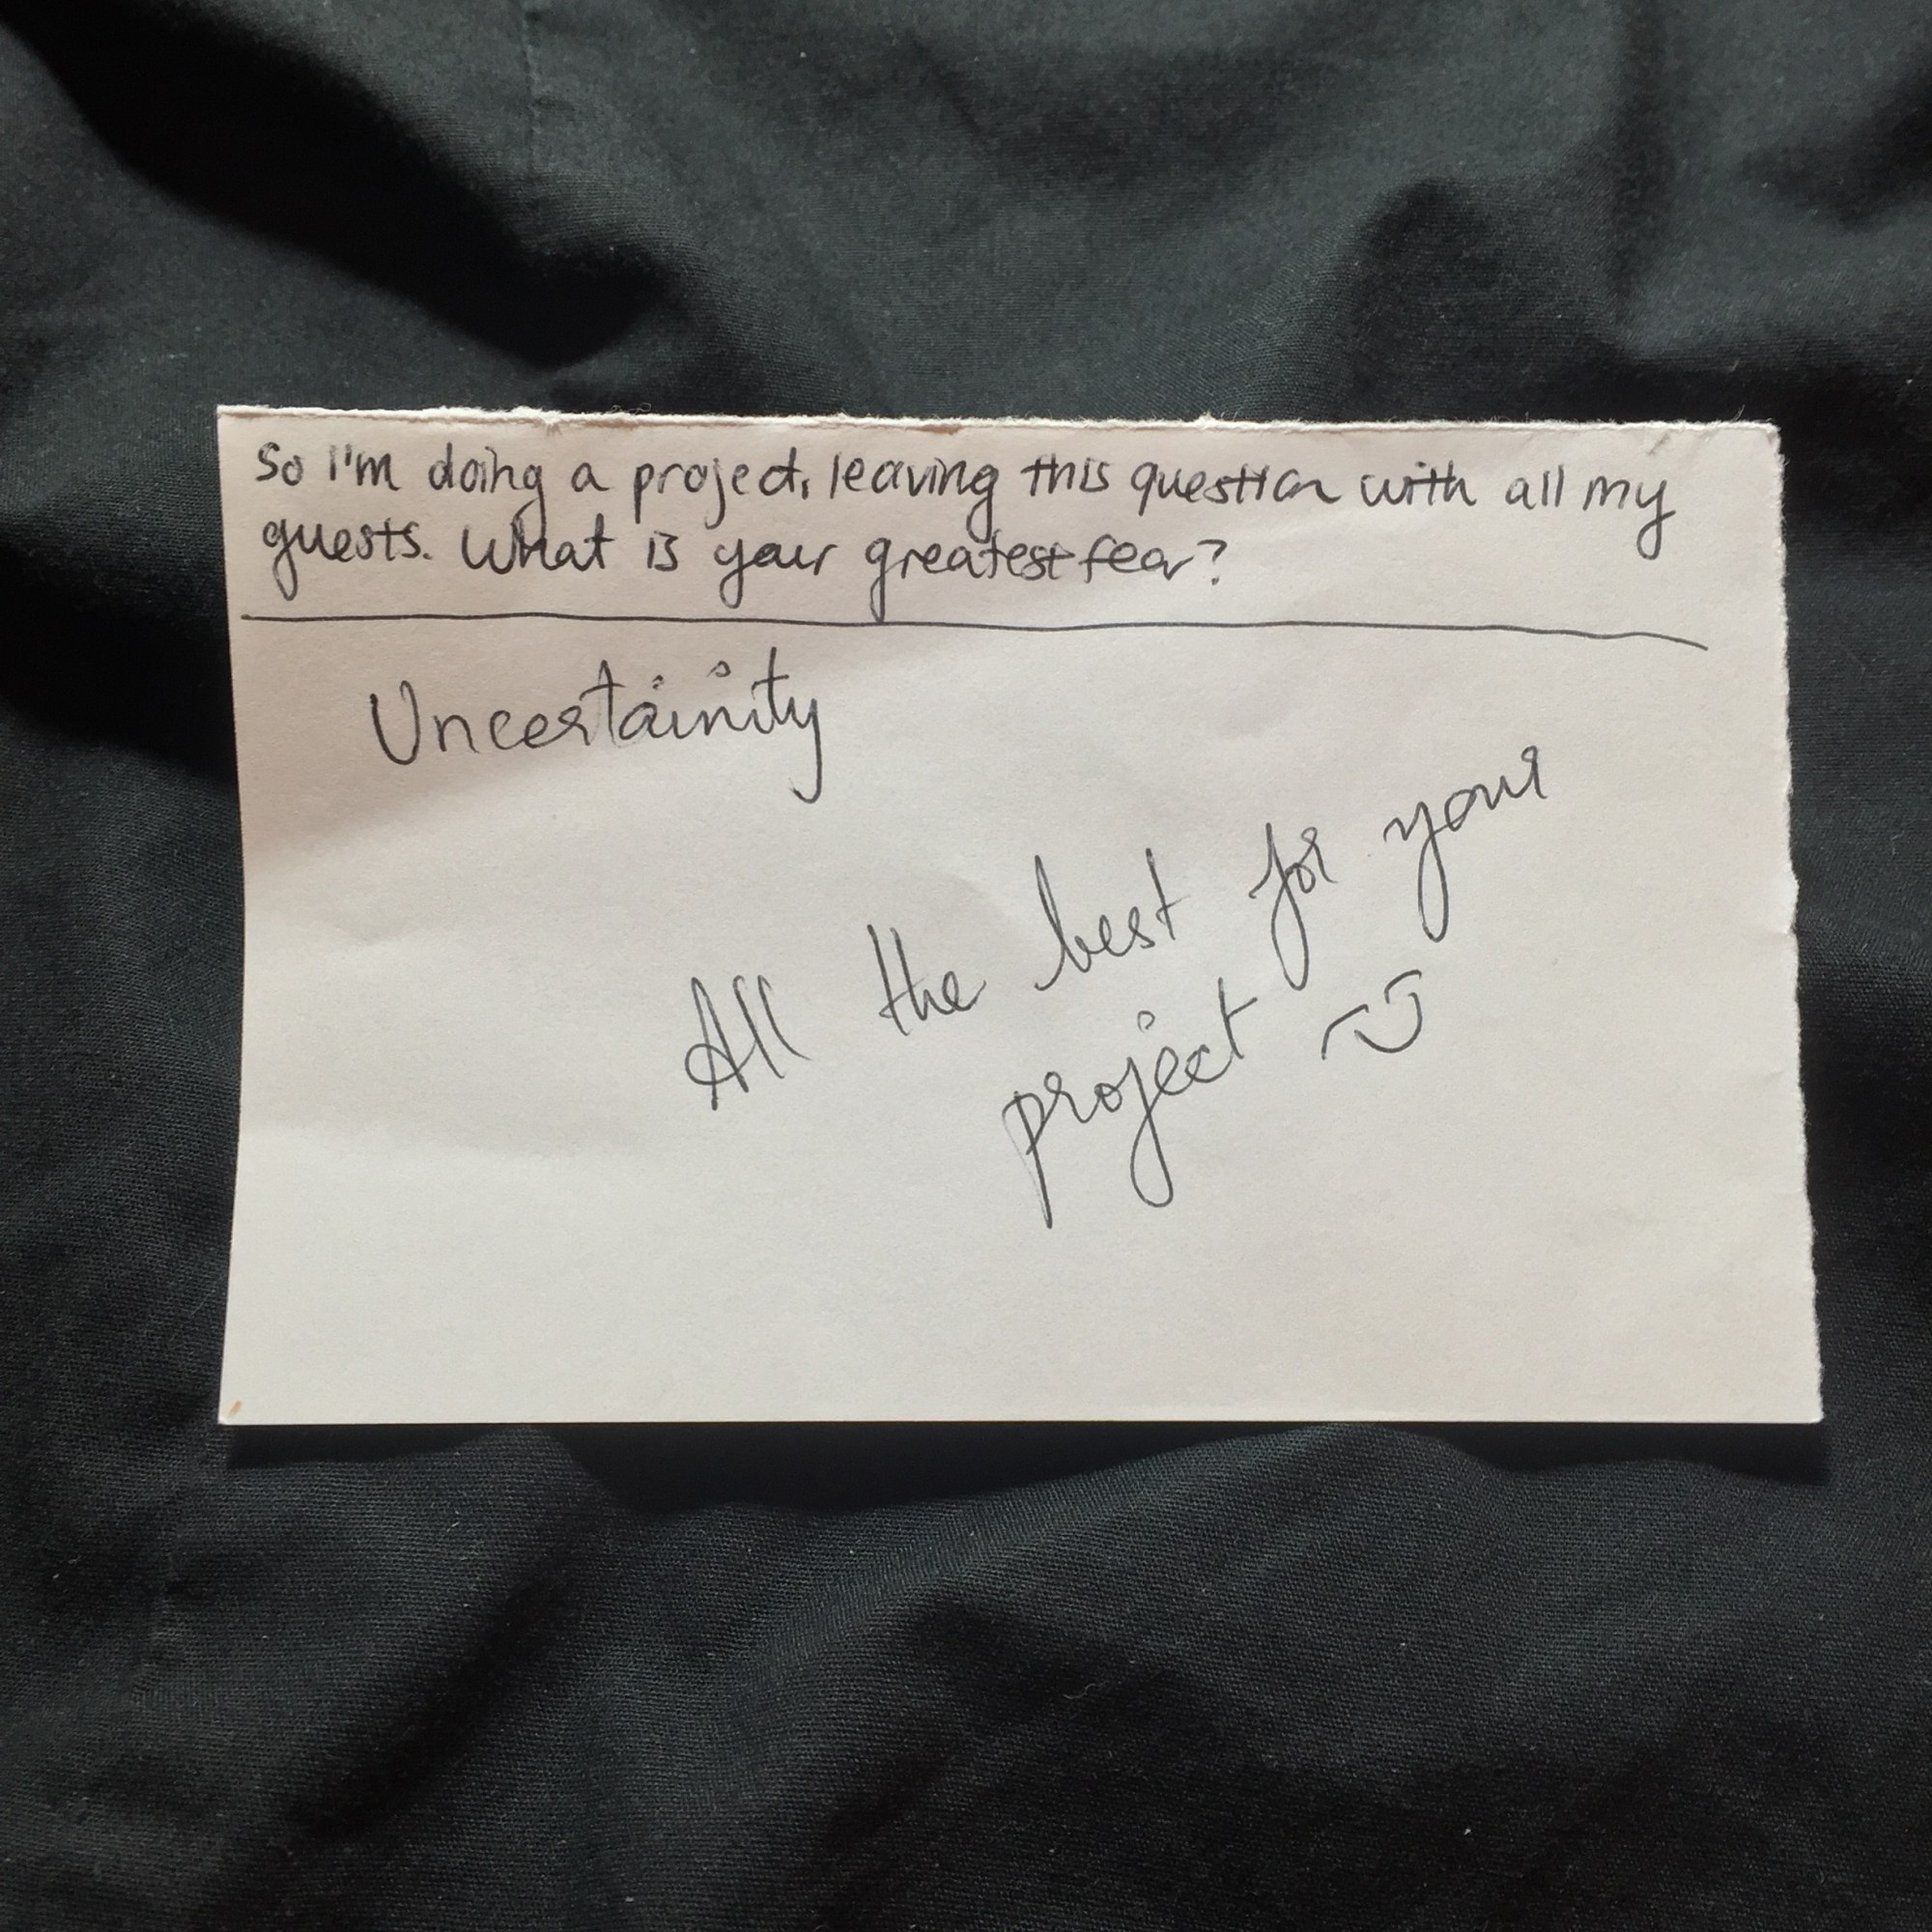 So I'm doing a project, leaving this question with all my
guests. What is your greatest fear?
Uncertainity
All the best for your
project